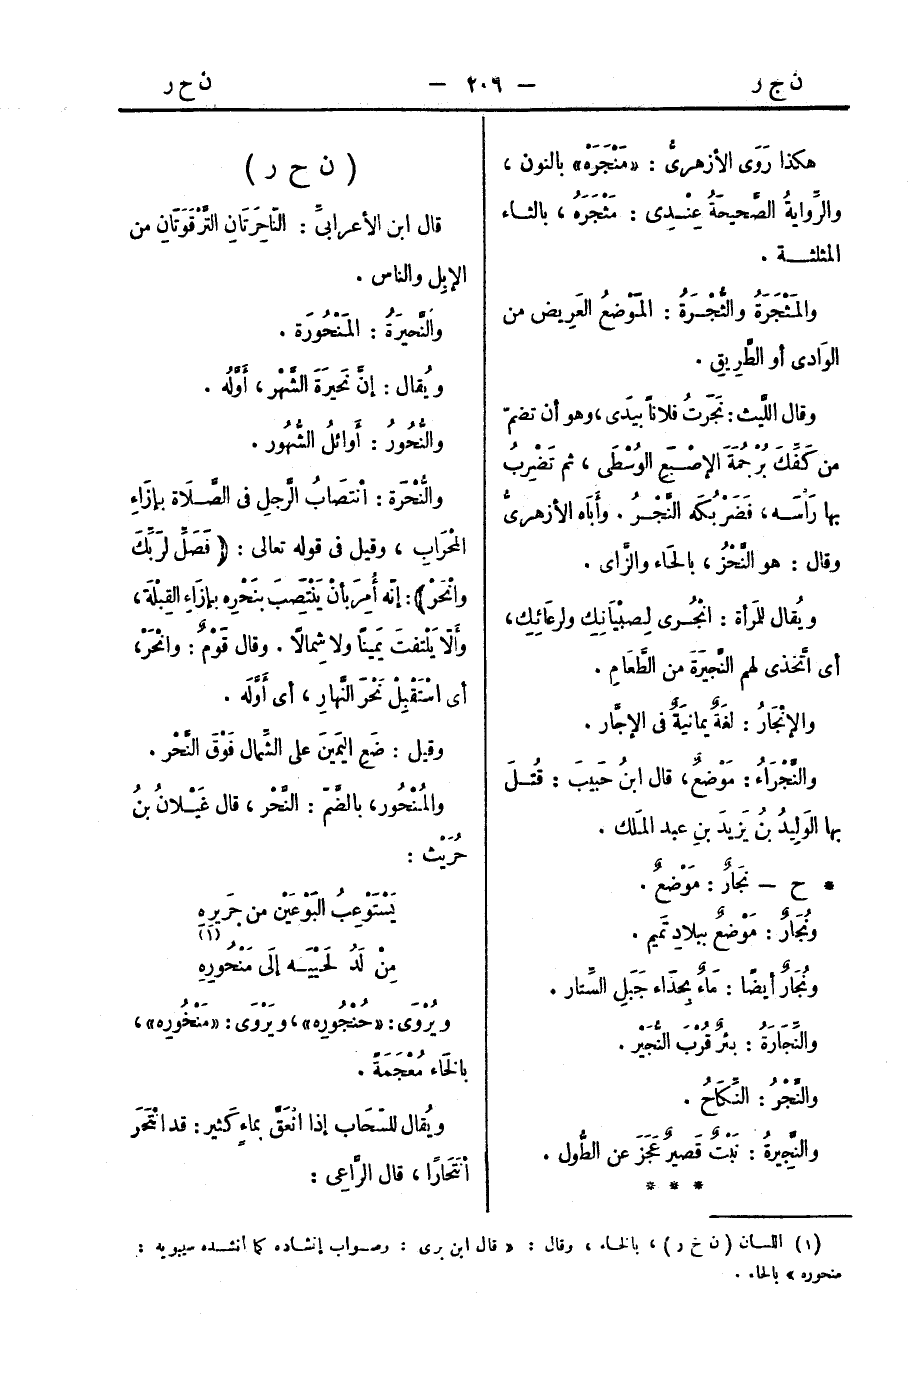 ن ج ر
— ٢٠٩ —
ن ح ر
هكذا رَوَى الأزهرىُّ : «مَنْجَرَه» بالنون ،
والرِّوايةُ الصَّحيحةُ عِنْـدِى : مَثْجَرَه ، بالثـاء
المثلثـــة .
والمَثْجَرَةُ والثُّجْـرَةُ : المَوْضعُ العَرِيض من
الوَادى أو الطَّرِيقِ .
وقال اللَّيث : نَجَرْتُ فلاناً بيَدَى ، وهو أن تضمّ
من كَفِّكَ بُرْجُمَةَ الإصْـبَعِ الوُسْطَى ، ثم تَضْرِبُ
بها رَأسَـه ، فَضَرْبُكَه النَّجْـرُ . وأَباه الأزهرىُّ
وقال : هو النَّحْزُ ، بالحَاء والزَّاى .
ويُقال للمَرأة : انْجُـرى لِصبْيَانِكِ ولرِعَائِكِ،
أى اتَّخذى لهم النَّجِيَرَةَ من الطَّعَامِ .
والإنْجَارُ : لغَةٌ يمانيَةٌ فى الإجَّار .
والنَّجْرَاءُ : مَوْضعٌ، قال ابنُ حَبيبَ : قُتـلَ
بها الوَلِيدُ بنُ يَزِيدَ بنِ عبد المَلك .
* ح — نَجَارٌ : مَوْضعٌ .
ونُجَارٌ : مَوْضعٌ ببلادِ تَميم .
ونُجَارٌ أيضًا : مَاءٌ بحذَاء جَبَلِ السِّتَار .
والنِّجَارَةُ : بئرٌ قُرْبَ النُّجَيْر .
والنَّجْرُ : النِّكَاحُ .
والنَّجِيرةُ : نَبْتٌ قَصيرٌ عَجَزَ عن الطُّول .
* * *
( ن ح ر )
قال ابن الأعرابىِّ : النّاحِرَتَان التَّرْقُوَتَانِ من
الإبِل والناس .
والنَّحيَرةُ : المَنْحُورَة .
ويُقال : إنَّ نَحِيرَةَ الشَّهْر ، أَوَّلُه .
والنُّحُورُ : أَوائلُ الشُّهُور .
والنُّحْرَة : انْتصَابُ الرَّجلِ فى الصَّـلَاة بإزَاءِ
المحْرَابِ ، وقيل فى قوله تعالى : ﴿ فَصَلِّ لرَبِّكَ
وانْحَرْ ﴾ : إنّه أُمِرَ بأنْ يَنْتَصِبَ بنَحْرِه بإزَاءِ القِبْلَة ،
وأَلّا يَلْتفتَ يَمينًا ولا شِمالًا . وقال قَوْمٌ : وانْحَرْ،
أى اسْتَقْبِلْ نَحْرَ النَّهارِ ، أى أَوَّلَه .
وقيل : ضَعِ اليَمِينَ على الشِّمال فَوْقَ النَّحْر .
والمُنْحُور، بالضَّمّ : النَّحْر ، قال غَيْـلانُ بنُ
حُرَيْث :
يَسْتَوْعِبُ البَوْعَيْن من جَريرِهِ
مِنْ لَدُ لَحْيَيْـه إلَى مَنْحُورِهِ (١)
ويُرْوَى : «حُنْجُوره»، ويُرْوَى : «مُنْخُوره»،
بالخَاء مُعْجَمَةً .
ويُقال للسَّحَاب إذا انْعَقَّ بماءٍ كَثير : قد انْتَحَرَ
انْتِحَارًا ، قال الرَّاعِى :
(١) اللسان ( ن خ ر ) ، بالخاء ، وقال : « قال ابن برى : وصـواب إنشاده كما أنشده سيبويه :
منحوره » بالحاء .